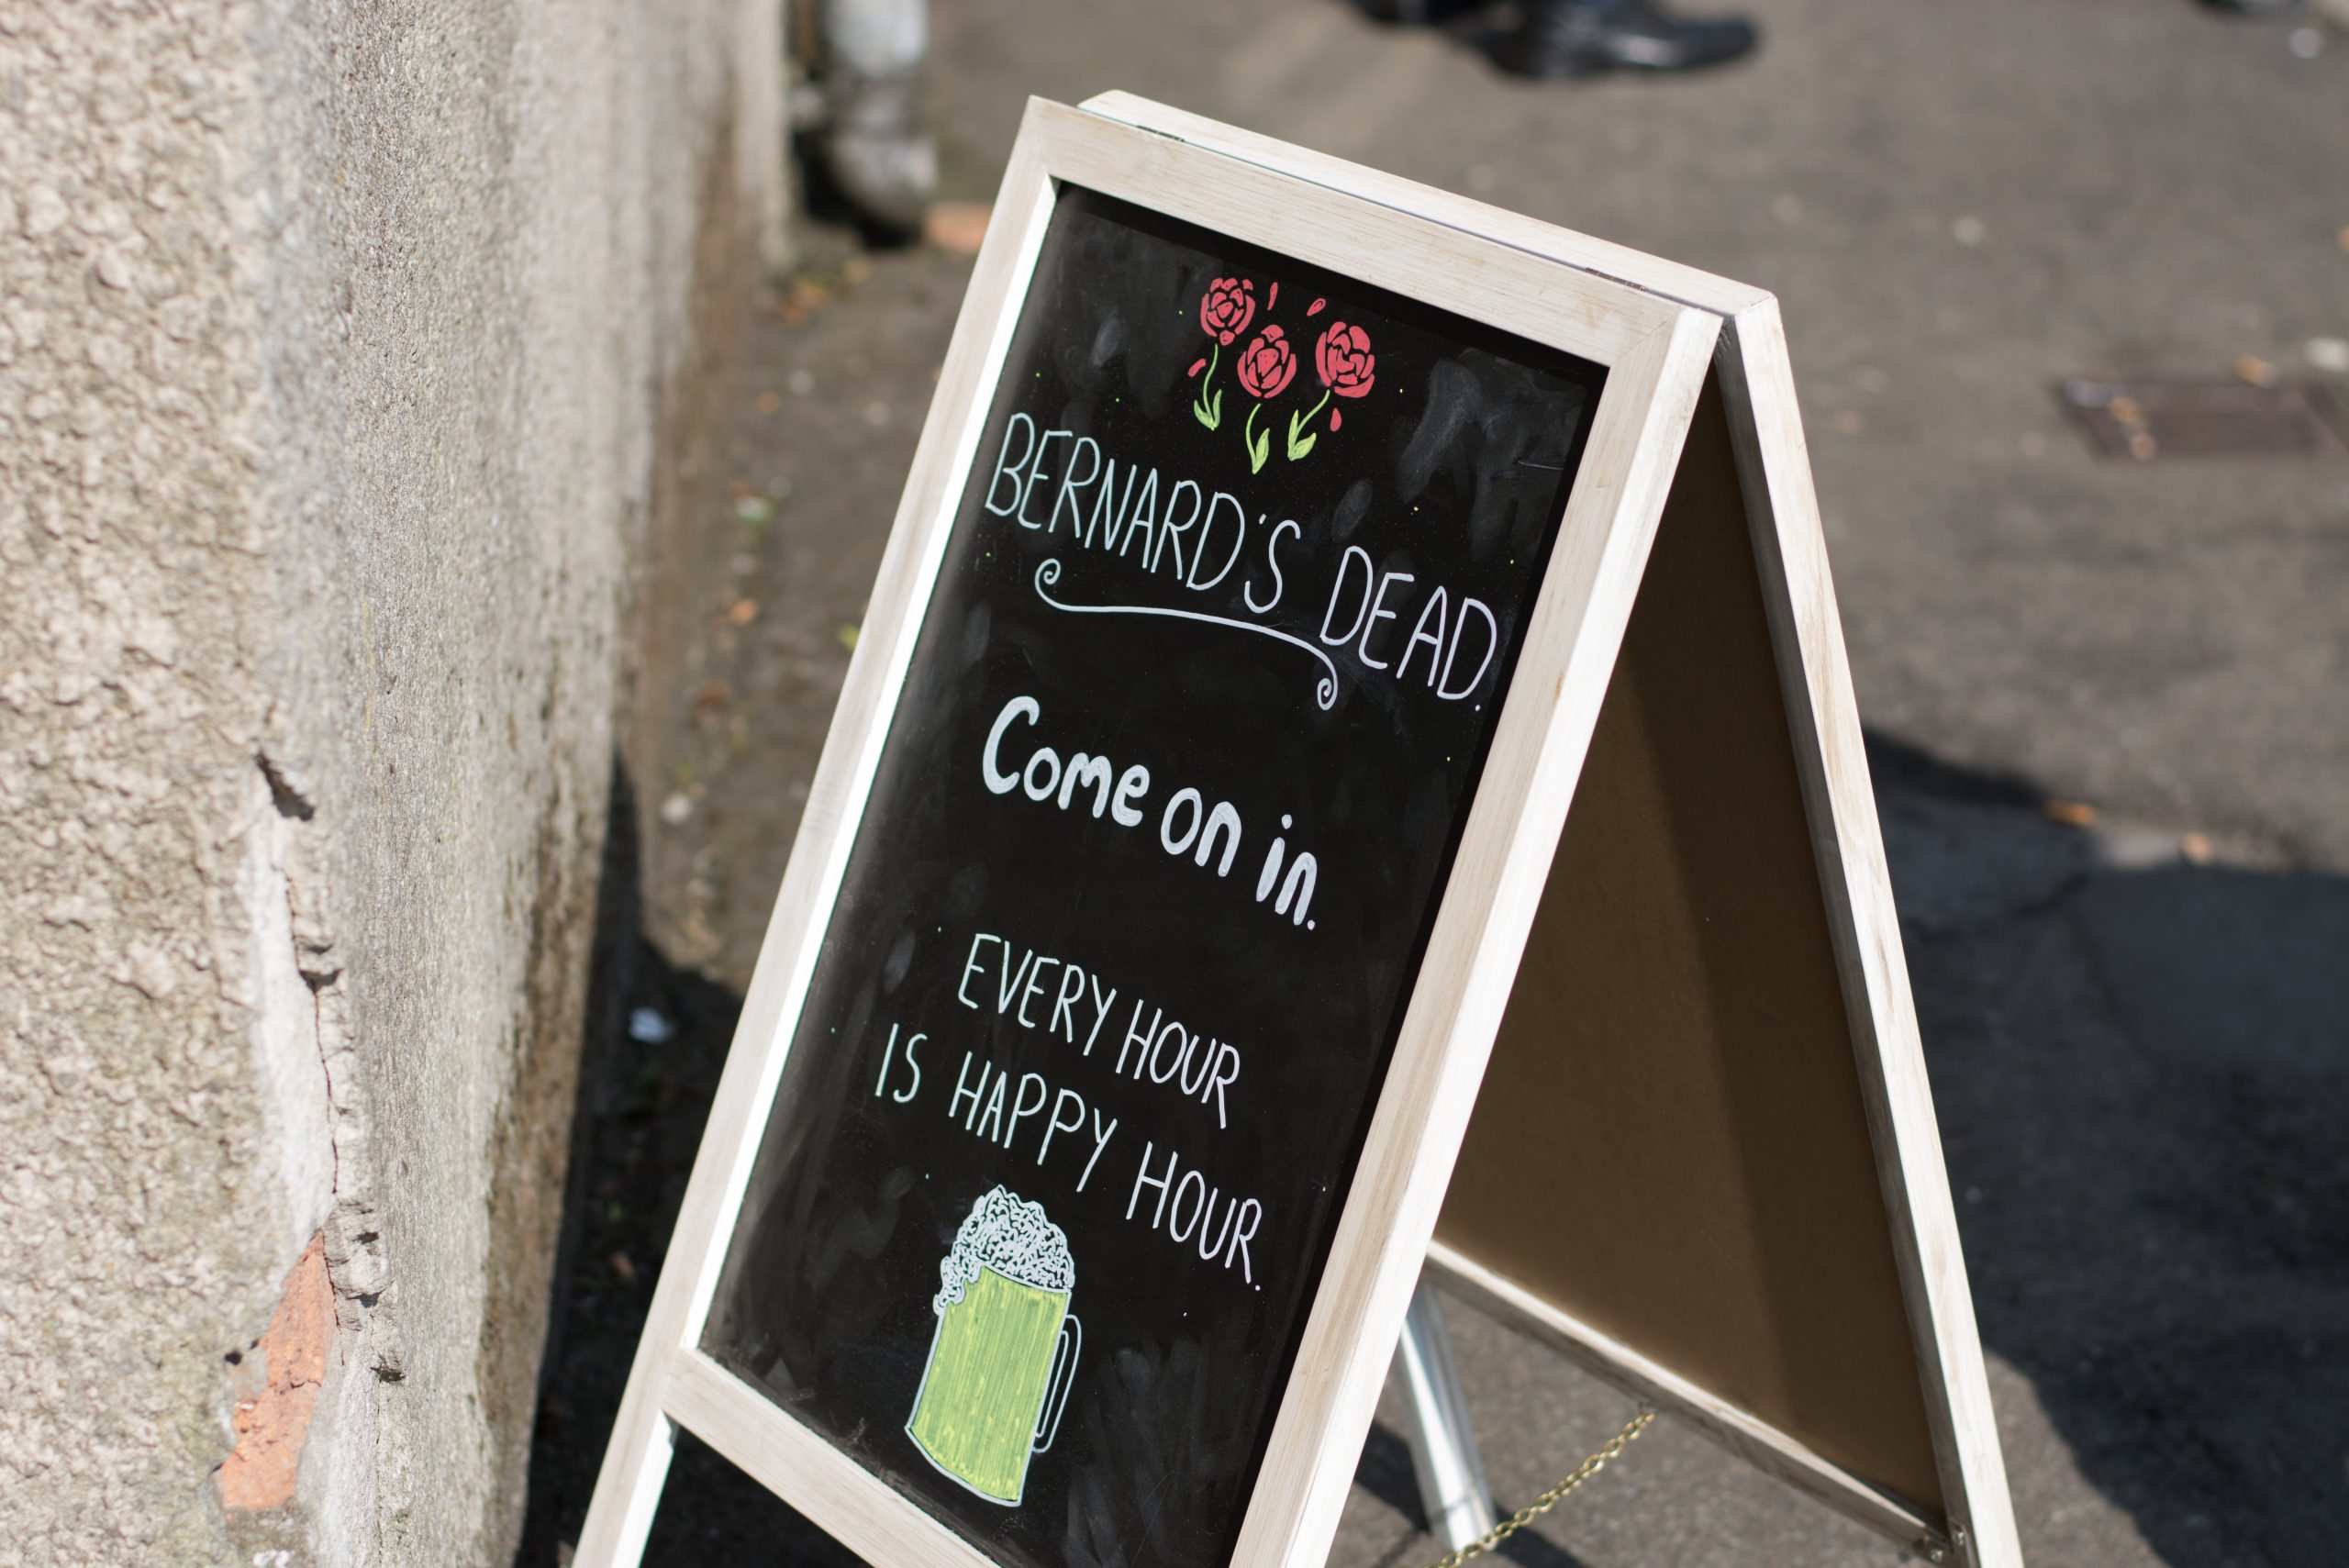 BERNARD'S DEAD.
Come on in.
EVERY HOUR
IS HAPPY HOUR.